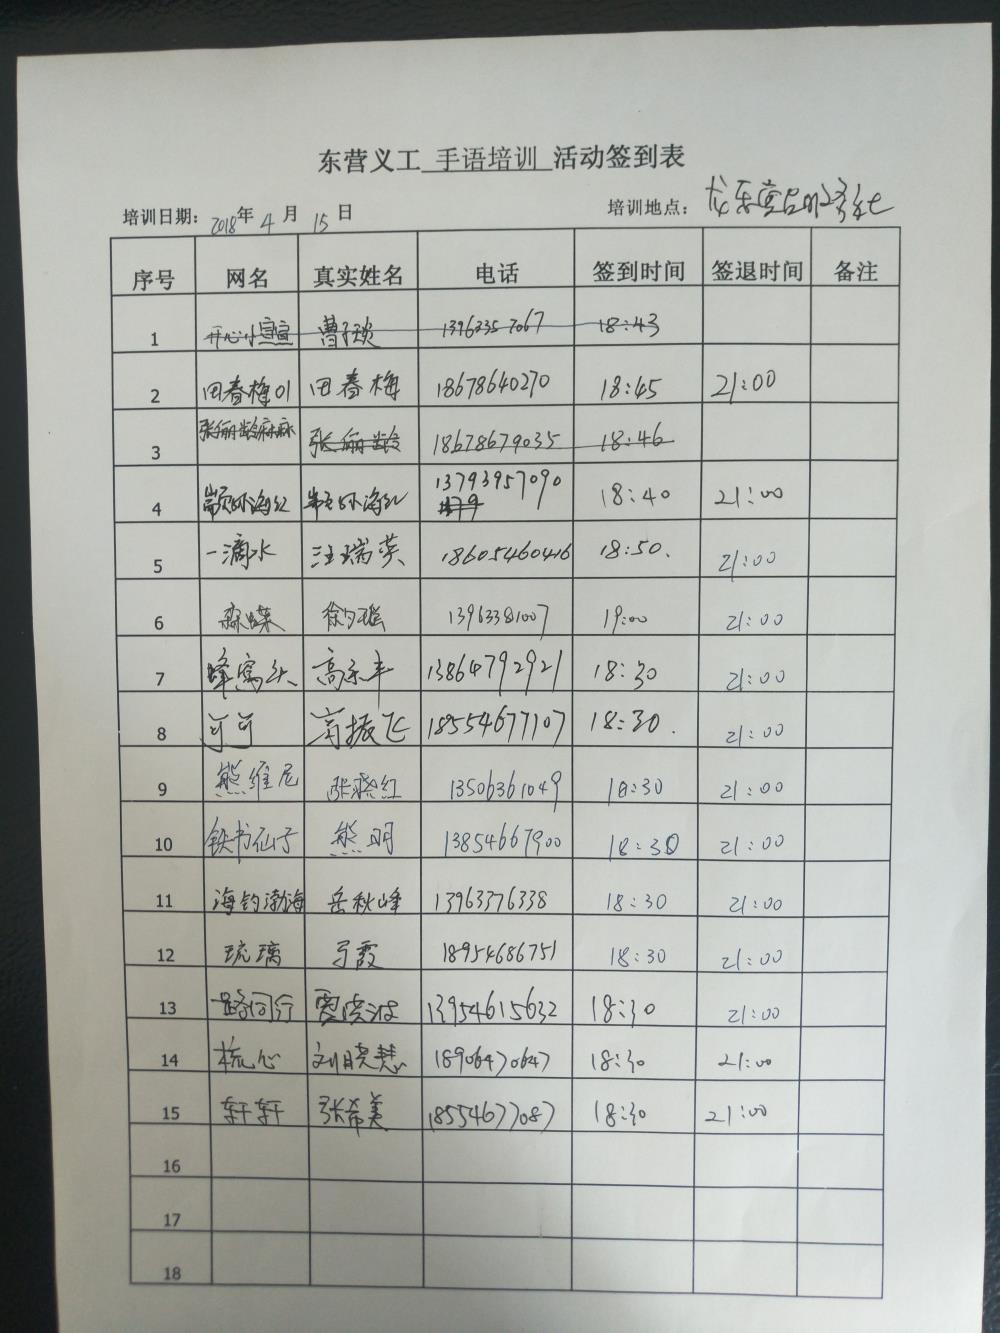 东营义工 手语培训 活动签到表
培训日期：2018年 4 月 15 日 培训地点：
序号 网名 真实姓名 电话 签到时间 签退时间 备注
1 开心小宣宣 曹 13963357067 18:43
2 田春梅01 田春梅 18678640270 18:45 21:00
3 张俪龄麻麻 张俪龄 18678679035 18:46
4 海红 海红 13793957090 18:40 21:00
5 一滴水 汪瑞英 18605460416 18:50. 21:00
6 徐 13963381007 19:00 21:00
7 蜂窝头 高 13864792921 18:30 21:00
8 可可 高振飞 18554677107 18:30. 21:00
9 熊维尼 张晓红 13506361049 18:30 21:00
10 铁书仙子 熊明 13854667900 18:30 21:00
11 海钓渤海 岳秋峰 13963376338 18:30 21:00
12 琉璃 霞 18954686751 18:30 21:00
13 一路同行 贾 13954615632 18:30 21:00
14 梳心 刘晓慧 18906470647 18:30 21:00
15 轩轩 张希美 18554677087 18:30 21:00
16
17
18